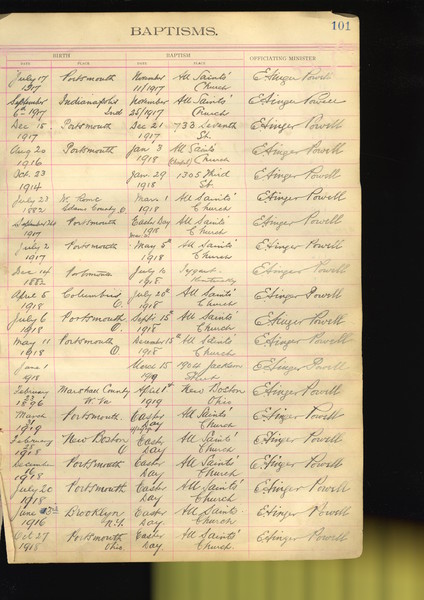 101
BAPTISMS.
BIRTH BAPTISM OFFICIATING MINISTER
DATE PLACE DATE PLACE
July 17 Portsmouth November All Saints' E Ainger Powell
1917 11/1917 Church
September Indianapolis November All Saints' E Ainger Powell
6th 1917 Ind 25/1917 Church
Dec 15 Portsmouth Dec 21 733 Seventh E Ainger Powell
1917 1917 St.
Aug 20 Portsmouth Jan 3 All Saints' E Ainger Powell
1916 1918 Church
Oct 23 Jan 29 1305 Third E Ainger Powell
1914 1918 St.
July 23 W. Mar 1 All Saints' E Ainger Powell
1882 Adams County O 1918 Church
September 24 Portsmouth Easter Day All Saints' E Ainger Powell
1917 1918 Church
July 2 Portsmouth May 5th All Saints' E Ainger Powell
1917 1918 Church
Dec 14 Portsmouth July 14 E Ainger Powell
1882 1918
April 5 Columbus July 20th All Saints' E Ainger Powell
1918 O. 1918 Church
July 6 Portsmouth Sept 15th All Saints' E Ainger Powell
1918 O. 1918 Church
May 11 Portsmouth December 15th All Saints E Ainger Powell
1918 O 1918 Church
June 1 March 15 1904 Jackson E Ainger Powell
1918 1919 Street
February Marshall County April 1st New Boston E Ainger Powell
1896 W. Va 1919 Ohio
March Portsmouth Easter All Saints' E Ainger Powell
1919 Day Church
February New Boston Easter All Saints' E Ainger Powell
1918 O Day Church
December Portsmouth Easter All Saints' E Ainger Powell
1918 Day Church
July 20 Portsmouth Easter All Saints' E Ainger Powell
1918 Day Church
June Brooklyn Easter All Saints' E Ainger Powell
1916 N.Y. Day Church
Oct 27 Portsmouth Easter All Saints' E Ainger Powell
1918 Ohio. Day Church.